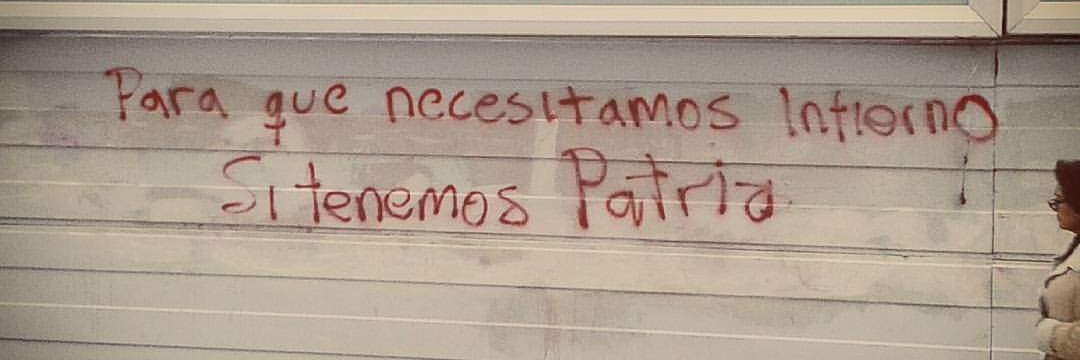 Para que necesitamos Infierno
Si tenemos Patria